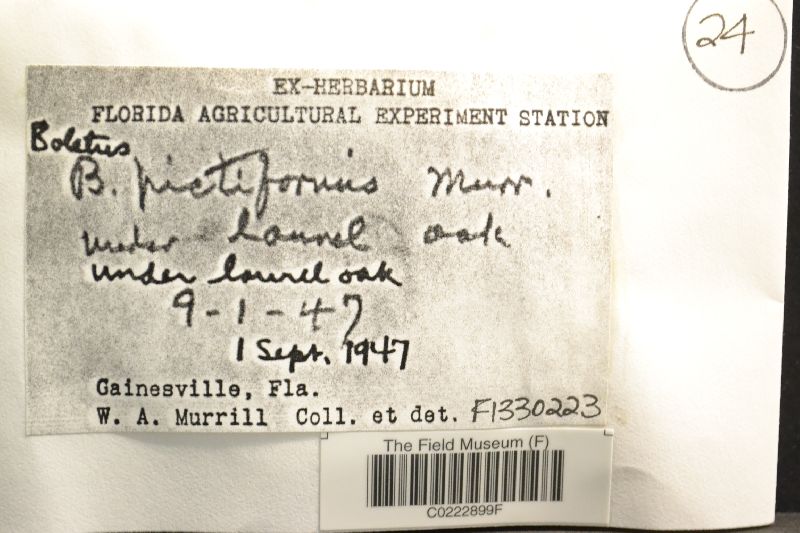 24
EX-HERBARIUM
FLORIDA AGRICULTURAL EXPERIMENT STATION
Boletus
B. pictiformis Murr.
under laurel oak
under laurel oak
9-1-47
1 Sept. 1947
Gainesville, Fla.
W. A. Murrill Coll. et det. F1330223
The Field Museum (F)
C0222899F